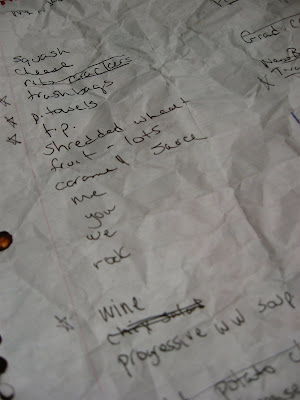 squash
cheese
ritz crackers
trashbags
p. towels
t.p.
shredded wheat
fruit - lots
caramel sauce
me
you
we
rock
wine
progressive WW soup
potato